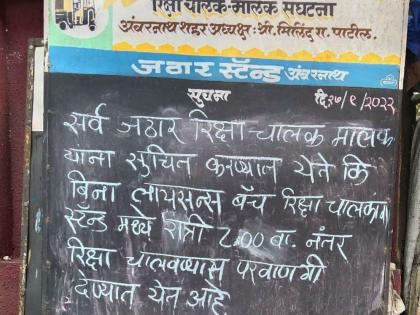 रिक्षा चालक-मालक संघटना
अंबरनाथ शहर अध्यक्ष : श्री. मिलिंद गा. पाटील.
जठार स्टॅन्ड अंबरनाथ
सुचना
दि.२७/९/२०२२
सर्व जठार रिक्षा-चालक मालक
याना सुचित करण्यात येते कि
बिना लायसन्स बॅच रिक्षा चालकाना
स्टॅन्ड मध्ये रात्री ८:०० वा. नंतर
रिक्षा चालवण्यास परवाणगी
देण्यात येत आहे